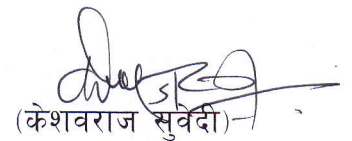 (केशवराज सुवेदी)